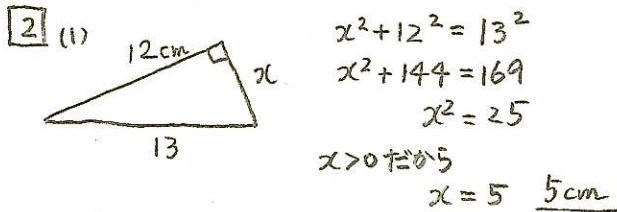 2 (1)
12cm
x
13
x²+12²=13²
x²+144=169
x²=25
x>0だから
x=5 5cm